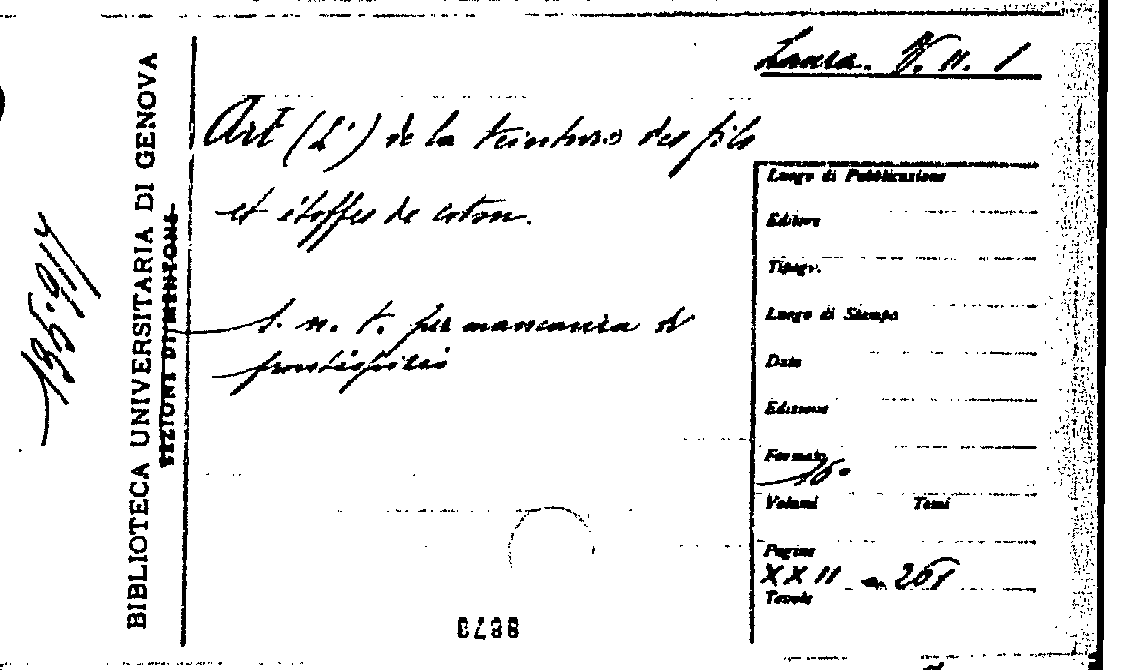 Laura. V. n. 1
Art (L') de la teinture des fils
et étoffes de coton.
s. n. t. per mancanza di
frontispizio
BIBLIOTECA UNIVERSITARIA DI GENOVA
SEZIONI DI
Luogo di Pubblicazione
Editore
Tipogr.
Luogo di Stampa
Data
Edizione
Formato
16°
Volumi Tomi
Pagine
XXII 261
Tavole